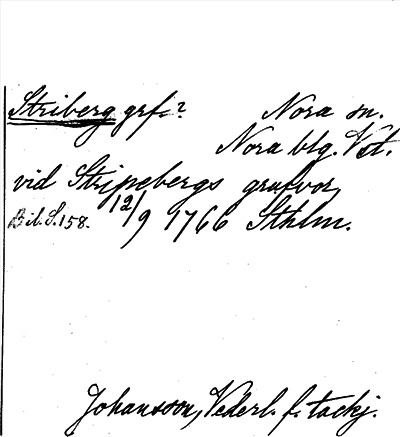 Striberg grf.?
Nora sn.
Nora blg. Vst.
vid Stripebergs grufvor
Bil. S. 158. 12/9 1766 Sthlm.
Johansson, Vederl. f. tackj.